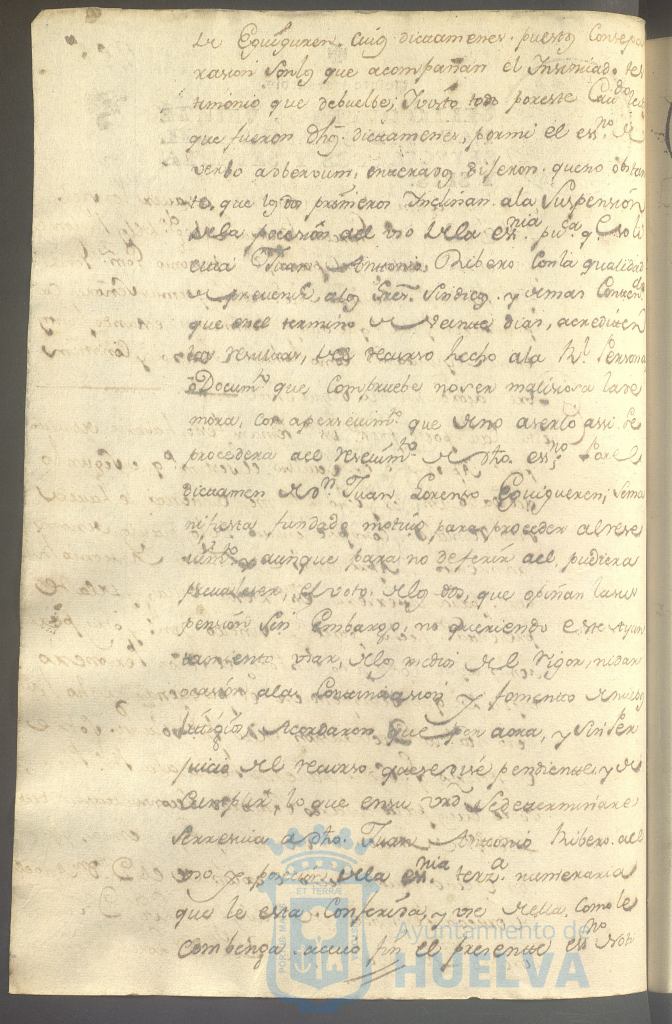 Dr Eguiguren. cuios dictamenes. puestos Consepa
rasion sonlos que acompañan el Insinuado. tes
timonio que debuelbe, Yvisto todo poreste Cavdo leidos
que fueron dhos. dictamenes, pormi el essno. de
verbo adberbum, enterados dijeron. queno obstan
te, que los dos primeros Inclinan. ala Suspensión
dela posesión del uso dela essnia. puca. q. soli
cita Juan Antonio Ribero. conla qualidad
de prevenir, alos Sres. Sindicos. y demas Contendos
que enel termino de veinte dias, acrediten
las resultas, del recurso hecho ala Rl. Persona
o Documto. que compruebe noser malisiosa lade
mora, con apersevimto. que deno aserlo assi se
procedera ael resevimto. de dho. essno. Porel
dictamen de Dn. Juan Lorenso Eguigueren, sema
nifiesta fundado motivo para proceder alrese
vimto. y aunque para no deferir ael, pudiera
prevaleser, el voto delos dos, que opinan lasus
pensión Sin Embargo, no queriendo este Ayun
tamiento usar, delos medios del Rigor, nidar
ocasion alas Continuasion y fomento denuebos
Litigios, Acordaron que por aora, y sinper
juicio del recurso quesedise pendiente, y de
Cumplir lo que ensu vrd. Sedeterminare
Serresiva a dho. Juan Antonio Ribero. ael
uso y posesion, dela essnia. terza. numeraria
que le esta. Conferida, y use della. como le
combenga. acuio fin el presente essno. Noti
Ayuntamiento de
HUELVA